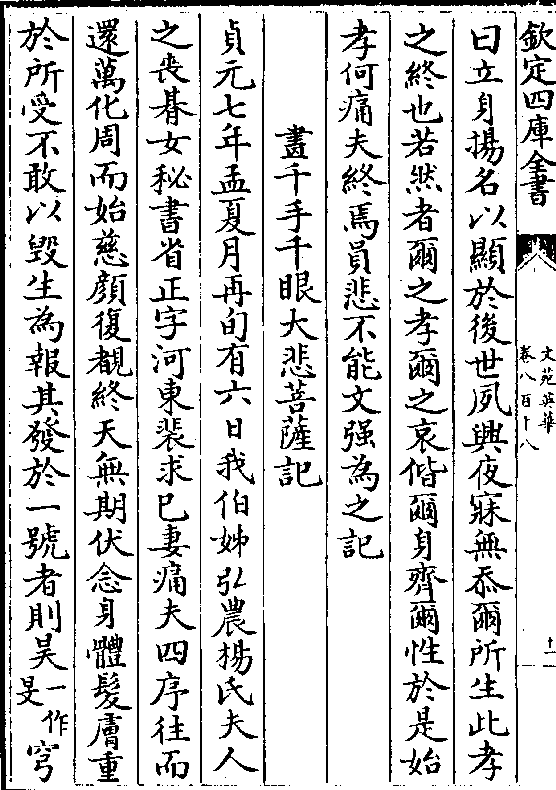 欽定四庫全書
文苑英華
卷八百十八
十一
曰立身揚名以顯於後世夙興夜寐無忝爾所生此孝
之終也若然者爾之孝爾之哀偕爾身齊爾性於是始
孝何痛夫終焉員悲不能文强為之記
畫千手千眼大悲菩薩記
貞元七年孟夏月再旬有六日我伯姊弘農楊氏夫人
之喪朞女秘書省正字河東裴求巳妻痛夫四序往而
還萬化周而始慈顔復覩終天無期伏念身體髮膚重
於所受不敢以毁生為報其發於一號者則昊一作旻穹